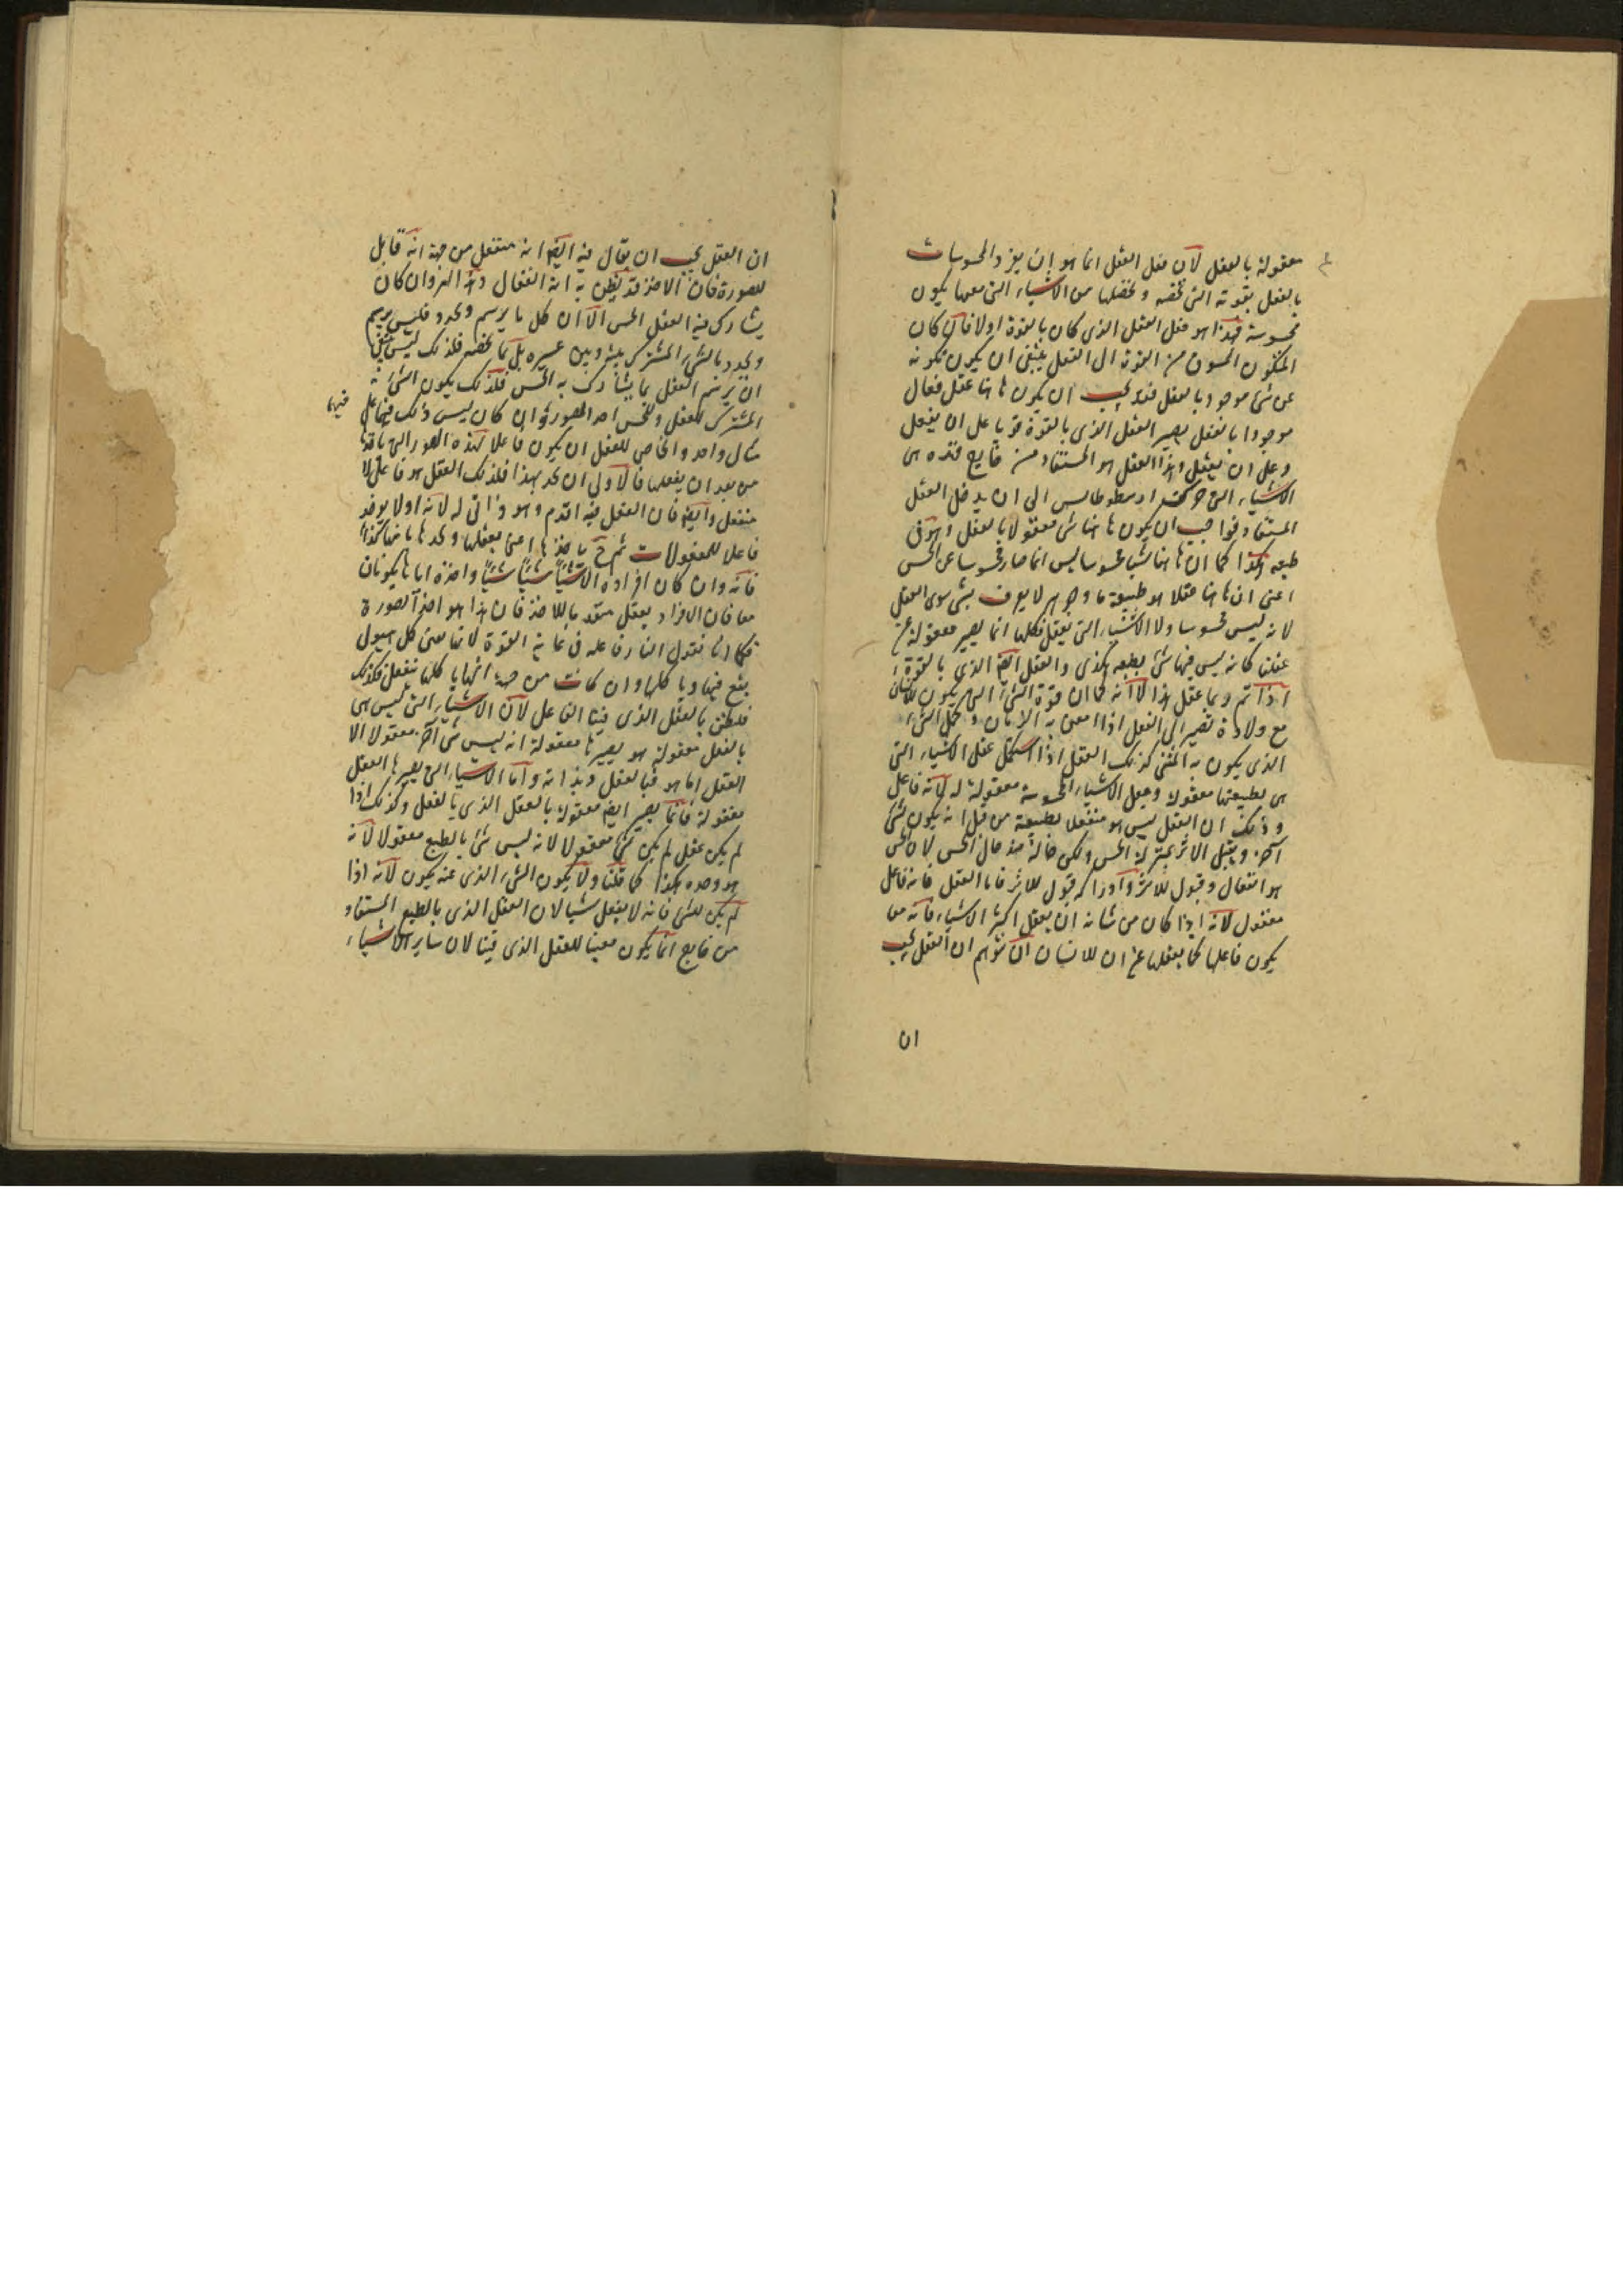 معقولة بالفعل لان فعل العقل انما هو ان يفرد المحسوسات
بالفعل بقوته التى تخصه ويخصلها من الاشياء التى معها يكون
محسوسة فهذا هو فعل العقل الذى كان بالقوة اولا فان كان
المتكون المسوق من القوة الى الفعل ينبغى ان يكون تكونه
عن شئ موجود بالفعل فقد يجب ان يكون هاهنا عقل فعال
موجودا بالفعل يصير العقل الذى بالقوة قويا على ان يفعل
وعلى ان يعقل وهذا العقل هو المستفاد من خارج فهذه هى
الاشياء التى حركت ارسطوطاليس الى ان يدخل العقل
المستفاد فواجب ان يكون هاهنا شئ معقولا بالفعل وهو فى
طبعه هكذا كما ان هاهنا شيئا محسوسا ليس انما صار محسوسا عن الحس
اعنى ان هاهنا عقلا هو طبيعة ما وجوهر لا يعرف بشئ سوى العقل
لانه ليس محسوسا ولا الاشياء التى تعقل فكلها انما يصير معقولة عن
عقلنا كانه ليس فيها شئ بطبعه هكذى والعقل ايضا الذى بالقوة
اذا تم ونما عقل هذا لا انه كما ان قوة المشى التى يكون للانسان
مع ولادة تصير الى الفعل اذا امعن به الزمان وكمل الشئ
الذى يكون به المشى كذلك العقل اذا استكمل عقل الاشياء التى
هى بطبيعتها معقولة وجعل الاشياء المحسوسة معقولة له لانه فاعل
وذلك ان العقل ليس هو منفعلا بطبيعة من قبل انه يكون لشئ
آخر ويقبل الاثر بمنزلة الحس ولكن حاله ضد حال الحس لان الحس
هو انفعال وقبول للاثر وادراكه قبول للاثر فاما العقل فانه فاعل
معقول لانه اذا كان من شانه ان يعقل اكثر الاشياء فانه مع
يكون فاعلها كما يعقلها عن ان للانسان ان توهم ان العقل يجب
ان
ان العقل يجب ان يقال فيه ايضا انه منفعل من جهة انه قابل
للصورة فان الاخذ قد يظن به انه انفعال وهذا المر وان كان
يشارك فيه العقل الحس الا ان كل ما يرسم ويحد فليس يرسم
ويحد بالشئ المشترك بينه وبين غيره بل بما يخصه فلذلك ليس ينبغى
ان يرسم العقل بما يشارك به الحس فلذلك يكون الشئ
المشترك للعقل وللحس اخذ الصورة وان كان ليس ذلك فيهما على
فيهما
مثال واحد والخاص للعقل ان يكون فاعلا لهذه الصور التى ياخذها
من بعد ان يفعلها فالاولى ان يحد بهذا فلذلك العقل هو فاعل لا
منفعل وايضا فان الفعل فيه اقدم وهو ذاتى له لانه اولا يوخذ
فاعلا للمعقولات ثم ح ياخذها اعنى يعقلها ويحدها بانها كذا
فانه وان كان افراده الاشيا شيئا شيئا واخذه اياها يكونان
معا فان الافراد يعقل متقدما للاخذ فان هذا هو اخذ الصورة
فكما انا نقول النار فاعله فى غاية القوة لانها تفنى كل هيولى
يقع فيها وياكلها وان كانت من جهة انها ياكلها تنفعل فكذلك
فلنظن بالعقل الذى فينا الفاعل لان الاشياء التى ليس هى
بالفعل معقولة هو يصيرها معقولة انه ليس شئ آخر معقولا الا
العقل اما هو فبالفعل وبذاته واما الاشياء التى يصيرها العقل
معقولة فانما يصير ايضا معقولة بالعقل الذى بالفعل وكذلك اذا
لم يكن عقل لم يكن شئ معقولا لانه ليس شئ بالطبع معقولا لانه
هو وحده هكذا كما قلنا ولا يكون الشئ الذى عنه يكون لانه اذا
لم يكن للشئ فانه لا يفعل شيا لان العقل الذى بالطبع المستفاد
من خارج انما يكون معينا للعقل الذى فينا لان ساير الاشياء